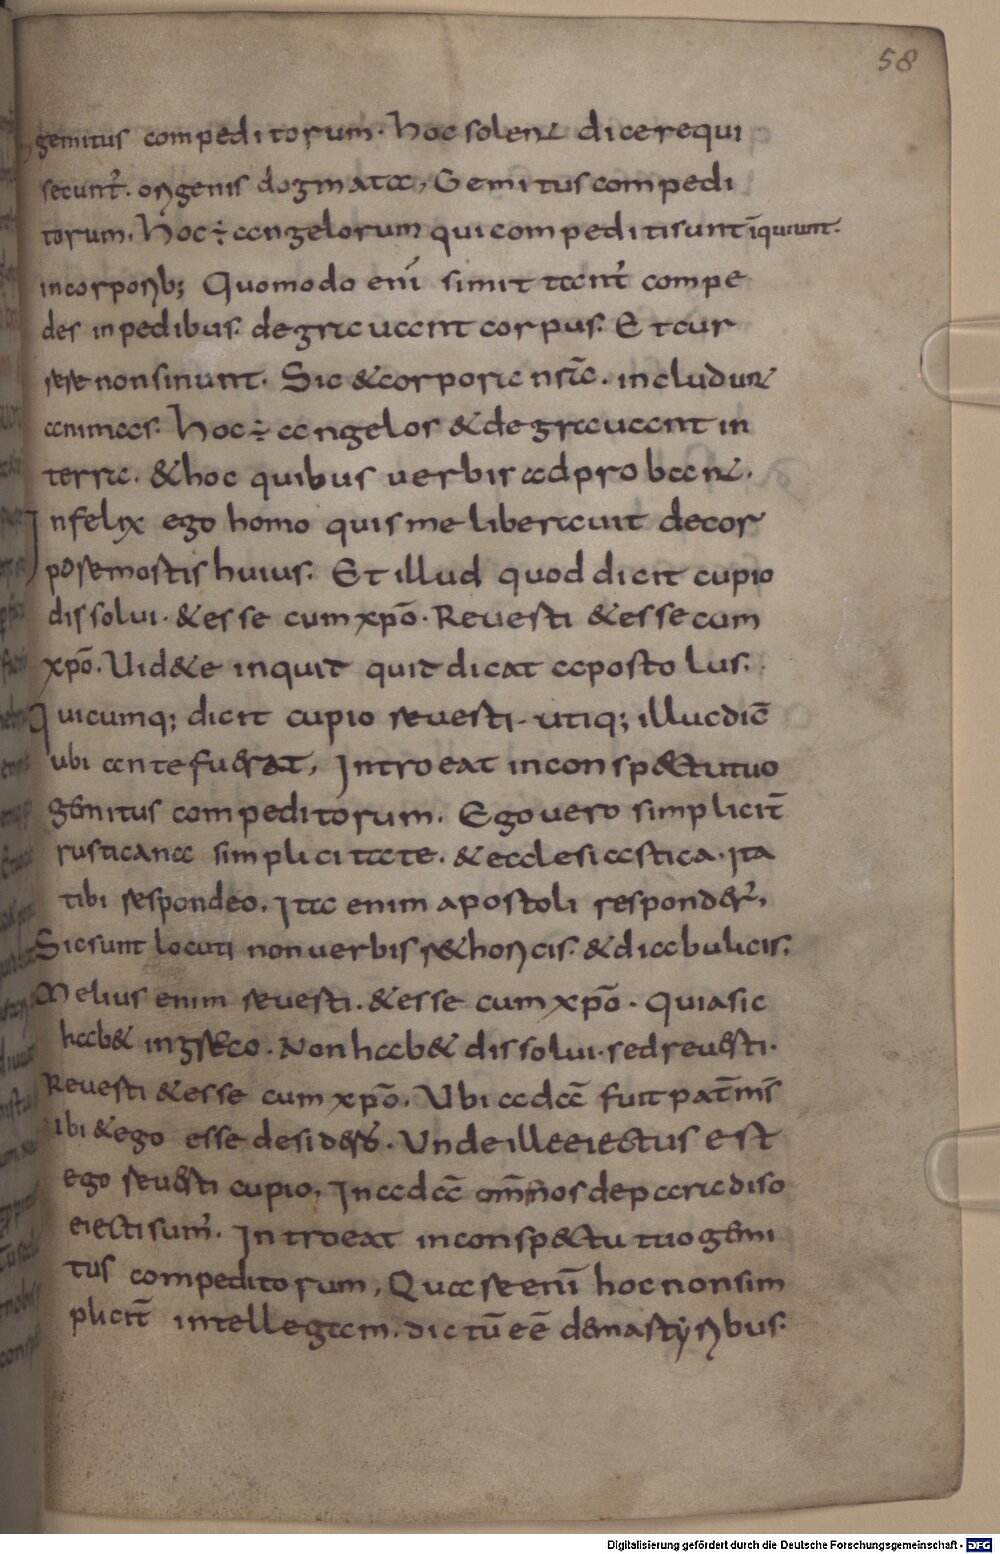 58
gemitus compeditorum. hoc solent dicere qui
secunt̃. origenis dogmata, Gemitus compedi
torum. hoc ÷ angelorum qui compediti sunt īquiunt.
in corporib; Quomodo enī si mittant̃ compe
des in pedibus. degrauant corpus. Et cur
rere non sinunt. Sic & corpora nrā. includunt
animas. hoc ÷ angelos & degrauant in
terra. & hoc quibus uerbis adprobant.
Infelix ego homo quis me liberauit de cor
pore mortis huius. Et illud quod dicit cupio
dissolui. & esse cum xpō. Reuerti & esse cum
xpō. Uid&e inquit quit dicat apostolus.
Quicumq; dicit cupio reuerti. utiq; illuc dic̄
ubi ante fuerat, Introeat in conspectu tuo
gemitus compeditorum. Ego uero simplicit̄
rusticana simplicitate. & ecclesiastica. Ita
tibi respondeo. Ita enim apostoli responder̃,
Sic sunt locuti non uerbis r&horicis. & diabulicis.
Melius enim reuerti. & esse cum xpō. Quia sic
hab& in greco. Non hab& dissolui. sed reuerti.
Reuerti & esse cum xpō. Ubi adā fuit pat̄ nr̄s
ubi & ego esse desidero. Unde ille eiectus est
ego reuerti cupio, In adā om̄s nos de paradiso
eiecti sum̃. Introeat in conspectu tuo gemi
tus compeditorum, Quare enī hoc non sim
plicit̄ intellegam. dictū eē de martyribus.
Digitalisierung gefördert durch die Deutsche Forschungsgemeinschaft - DFG